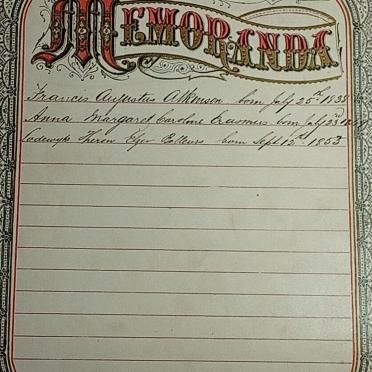 MEMORANDA
Francis Augustus Atkinson born July 25th 1838
Anna Margaret Caroline Erasmus born July 23rd
Lodewyk Theron born Sept 15th 1853